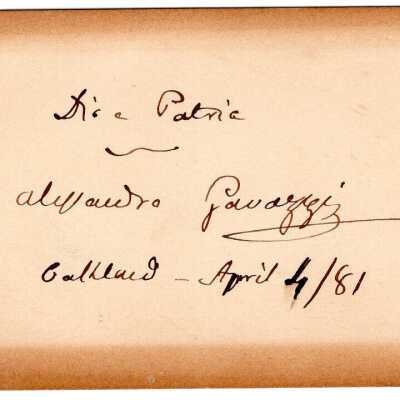 Dio e Patria
Alessandro Gavazzi
Oakland - April 4/81